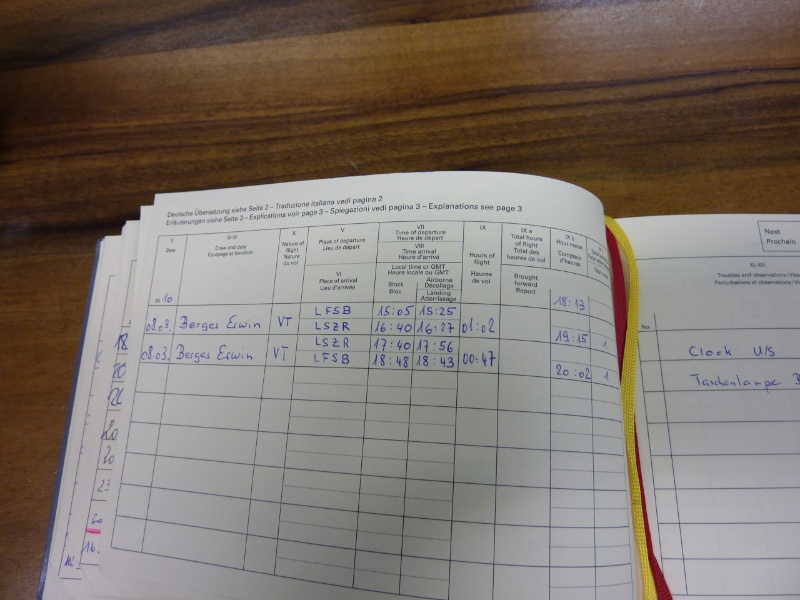 Deutsche Übersetzung siehe Seite 2 – Traduzione italiana vedi pagina 2
Erläuterungen siehe Seite 3 – Explications voir page 3 – Spiegazioni vedi pagina 3 – Explanations see page 3
II
Date
III-IV
Crew and duty
Equipage et fonction
X
Nature of flight
Nature du vol
V
Place of departure
Lieu de départ
VI
Place of arrival
Lieu d'arrivée
VII
Time of departure
Heure de départ
VIII
Time of arrival
Heure d'arrivée
Local time or GMT
Heure locale ou GMT
Block
Bloc
Airborne
Décollage
Landing
Atterrissage
IX
Hours of flight
Heures de vol
IX a
Total hours of flight
Total des heures de vol
Brought forward
Report
IX b
Hour meter
Compteur d'heures
18:13
08.03. Berges Erwin VT LFSB 15:05 15:25
LSZR 16:40 16:27 01:02 19:15 1
08.03. Berges Erwin VT LSZR 17:40 17:56
LFSB 18:48 18:43 00:47 20:02 1
18
20
20
20
23
16.
Next
Prochain
XI-XII
Troubles and observations/
Perturbations et observations/
No.
Clock U/S
Taschenlampe